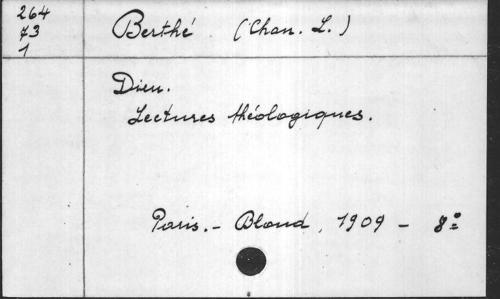 264
73
1
Berthé (Chan. L.)
Dieu.
Lectures théologiques.
Paris. - Bloud, 1909 - 8º